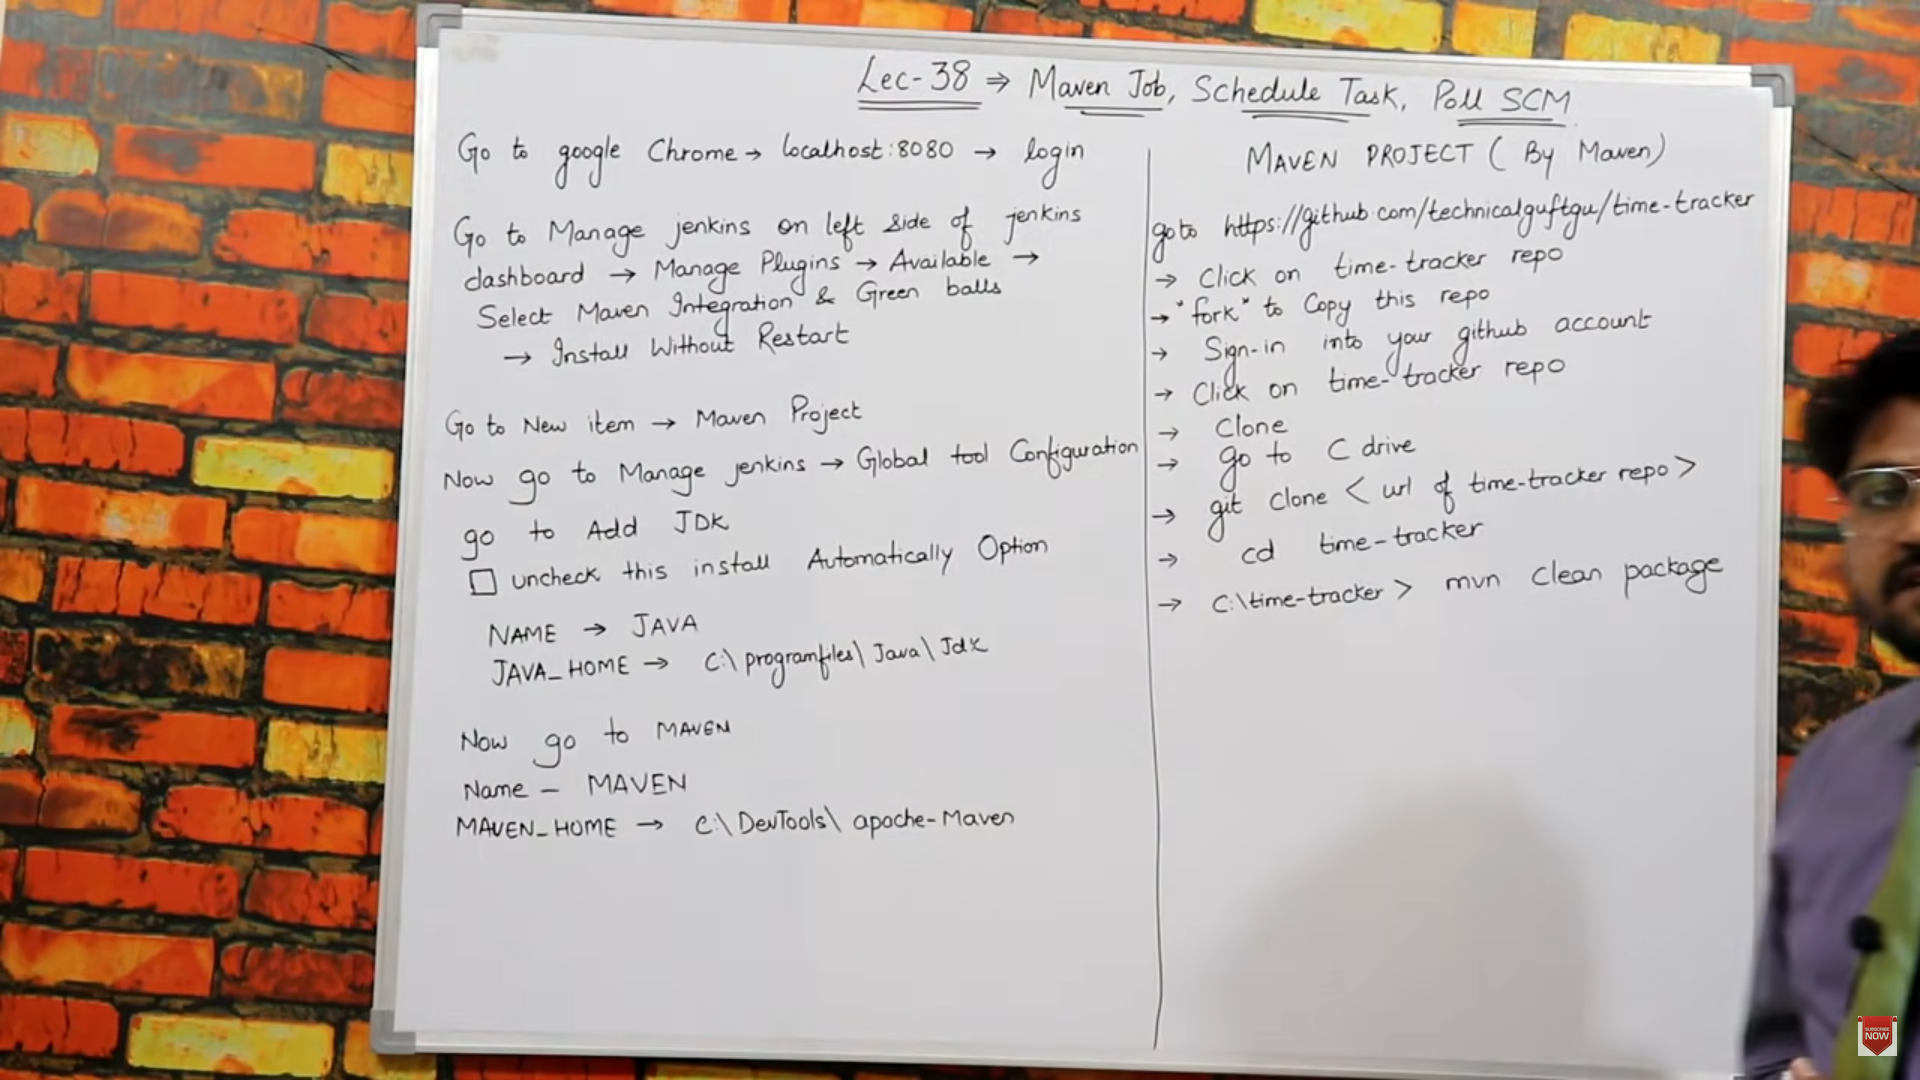 Lec-38 ⇒ Maven Job, Schedule Task, Poll SCM
Go to google Chrome → localhost:8080 → login
Go to Manage jenkins on left side of jenkins
dashboard → Manage Plugins → Available →
Select Maven Integration & Green balls
→ Install Without Restart
Go to New item → Maven Project
Now go to Manage jenkins → Global tool Configuration
go to Add JDK
uncheck this install Automatically Option
NAME → JAVA
JAVA_HOME → C:\programfiles\Java\Jdk
Now go to MAVEN
Name - MAVEN
MAVEN_HOME → C:\DevTools\apache-Maven
MAVEN PROJECT ( By Maven)
goto https://github.com/technicalguftgu/time-tracker
→ Click on time-tracker repo
→ "fork" to Copy this repo
→ Sign-in into your github account
→ Click on time-tracker repo
→ Clone
→ go to C drive
→ git clone < url of time-tracker repo >
→ cd time-tracker
→ C:\time-tracker > mvn clean package
SUBSCRIBE
NOW